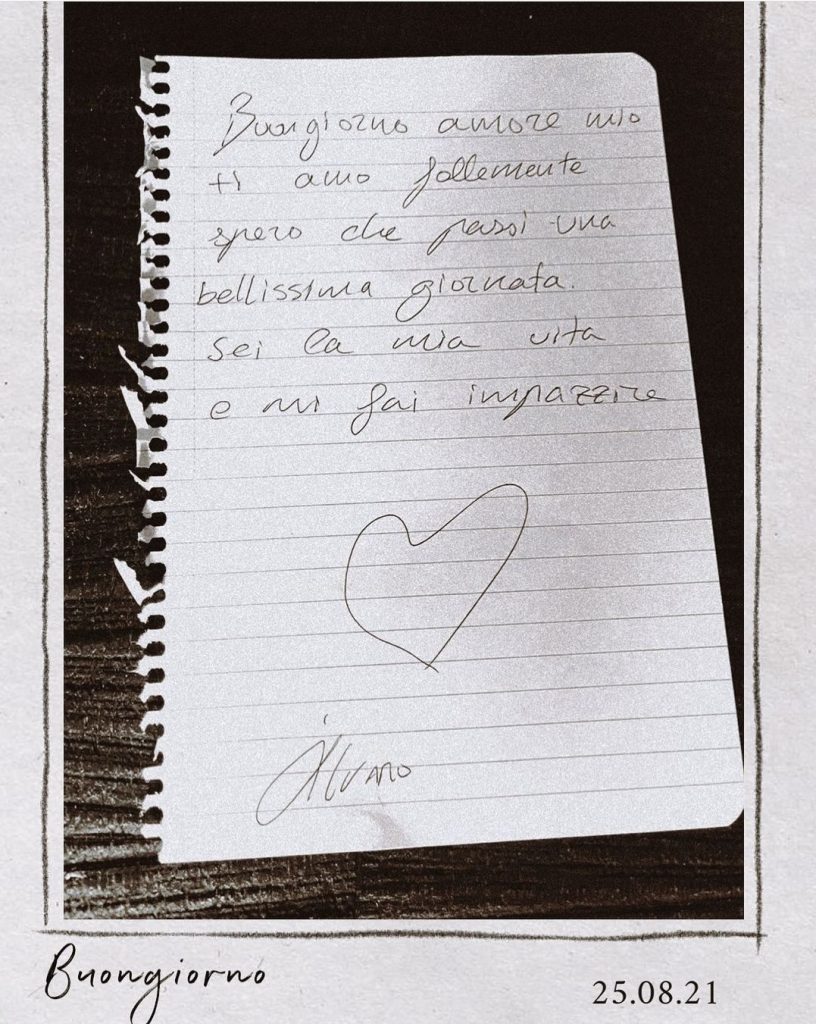 Buongiorno amore mio
ti amo follemente
spero che passi una
bellissima giornata.
Sei la mia vita
e mi fai impazzire
Buongiorno
25.08.21